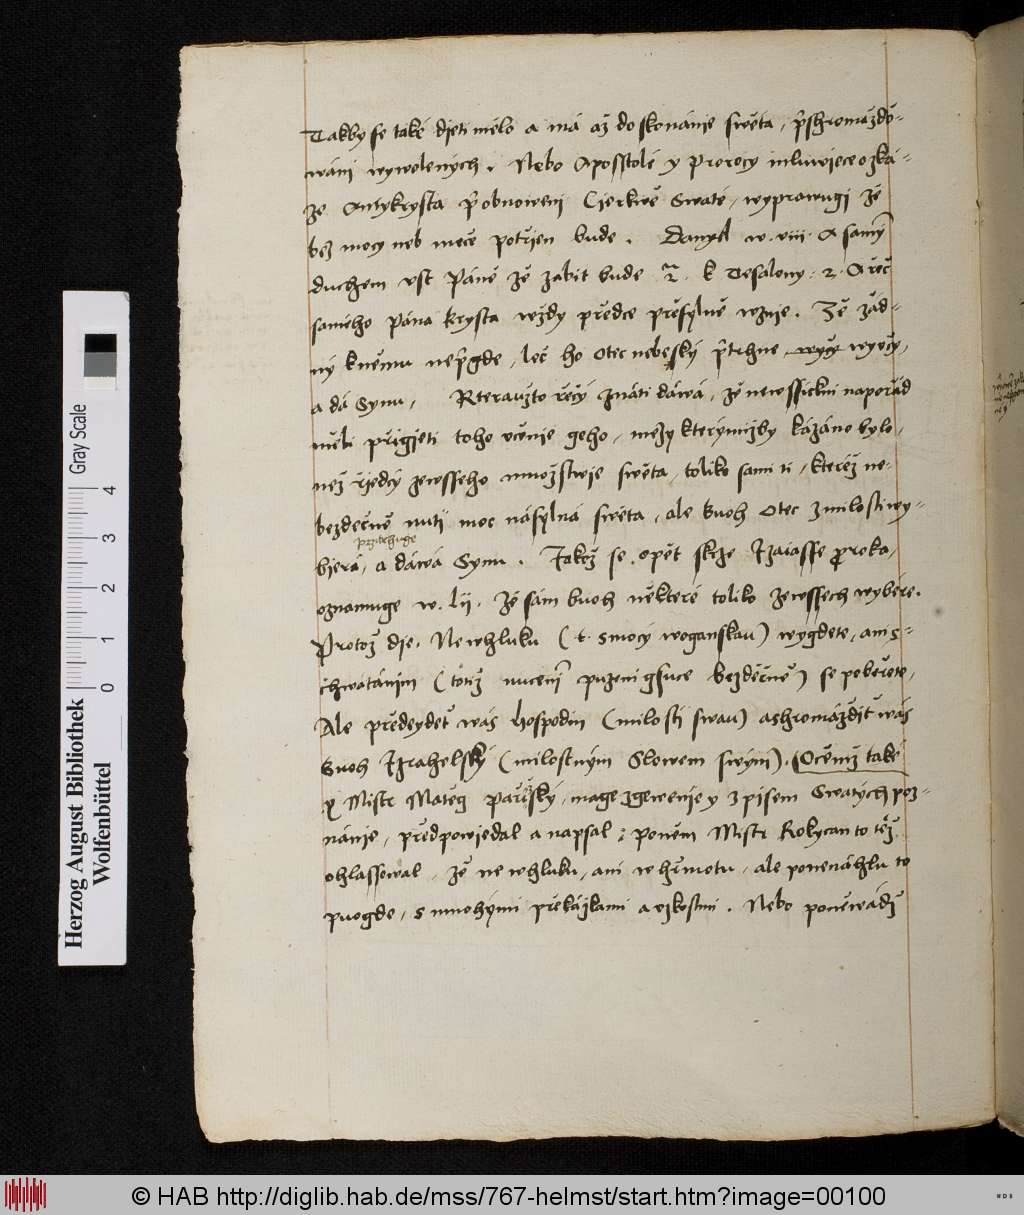 Takby se také djeti mělo a má až do skonánie swěta, přshromážďo-
wáni wywolených. Nebo Aposstolé y Prorocy mluwiece o zká-
ze Antykrysta př obnoweni Cierkwe Swaté, wyprawugi že
bez mocy neb mece potřien bude. Danyel w. viii. A samým
duchem vst Páně že zabit bude etc. k Tesalony: 2. A řeč
samého Pána Krysta wždy předce přesylně wznie. Že žád-
ný k němu nepřgde, leč ho Otec nebeský přtrhne, wyvčy,
a dá Synu, Kterauzto řečý znáti dáwá, že ne wssickni napořád
měli přigjeti toho včenie geho, mezy kterýmižby kázáno bylo,
než řjedcý ze wsseho množstwje swěta, toliko sami ti, kteréž ne-
bezděčně nuti moc násylná swěta, ale Buoh Otec z milosti wy-
przitrhuge
bjerá, a dáwá Synu. Jakož se opět skrze Izaiásse proroka,
oznamuge w. lij. že sám buoh některé toliko ze wssech wybére.
Protož die. Ne w hluku (t. s mocý woganskau) wygdete, ani s-
chwatáním (totiž nucenim puzeni gsuce bezděčně) se poběřete,
Ale předeydeť wás hospodin (milostj swau) a shromáždiť wás
Buoh Izrahelský (milostným Slowem swým). (Očemž take
y Mistr Matěg Pařížský, mage zgewenie y z pisem Swatých poz-
nánie, předpowiedal a napsal: poněm Mistr Rokycan to též
ohlassowal, že ne w hluku, ani w hřmotu, ale ponenáhlu to
puogde, s mnohými překážkami a vzkostmi. Nebo poněwádž
Herzog August Bibliothek
Wolfenbüttel
Gray Scale
0 1 2 3 4
© HAB http://diglib.hab.de/mss/767-helmst/start.htm?image=00100
WDB